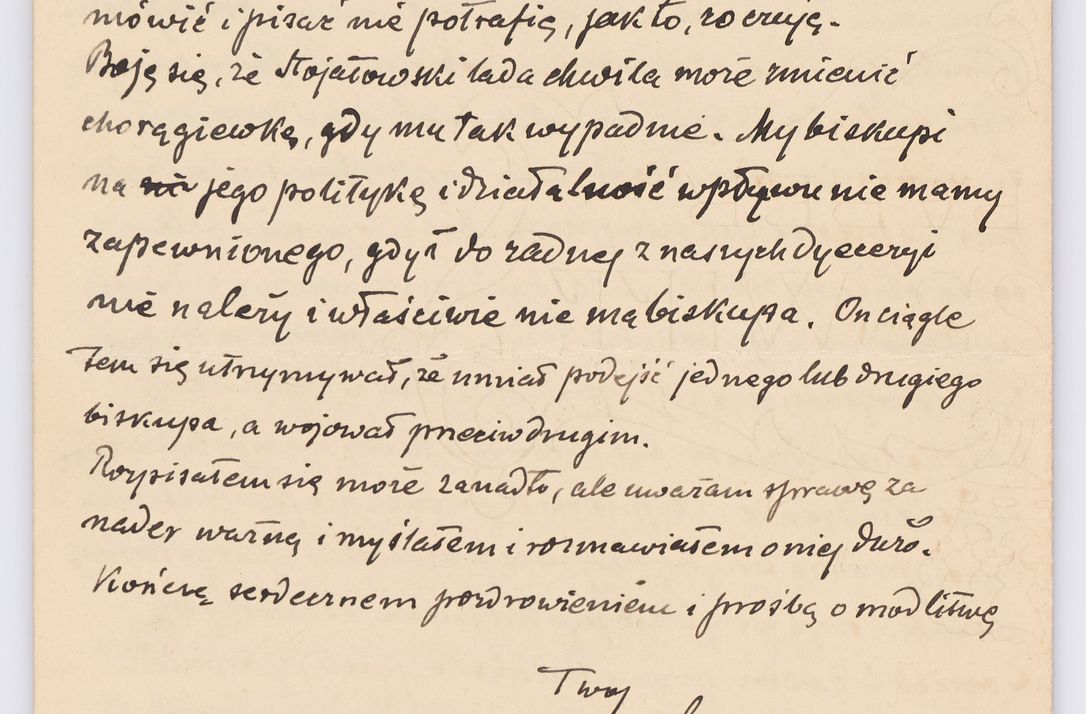 mówić i pisać nie potrafią, jak to, co czują.
Boję się, że Stojałowski lada chwila może zmienić
chorągiewkę, gdy mu tak wypadnie. My biskupi
na jego politykę i działalność wpływu nie mamy
zapewnionego, gdyż do żadnej z naszych dyecezyi
nie należy i właściwie nie ma biskupa. On ciągle
tem się utrzymywał, że umiał podejść jednego lub drugiego
biskupa, a wojował przeciw drugim.
Rozpisałem się może zanadto, ale uważam sprawę za
nader ważną i myślałem i rozmawiałem o niej dużo.
Kończę serdecznem pozdrowieniem i prośbą o modlitwę
Twój